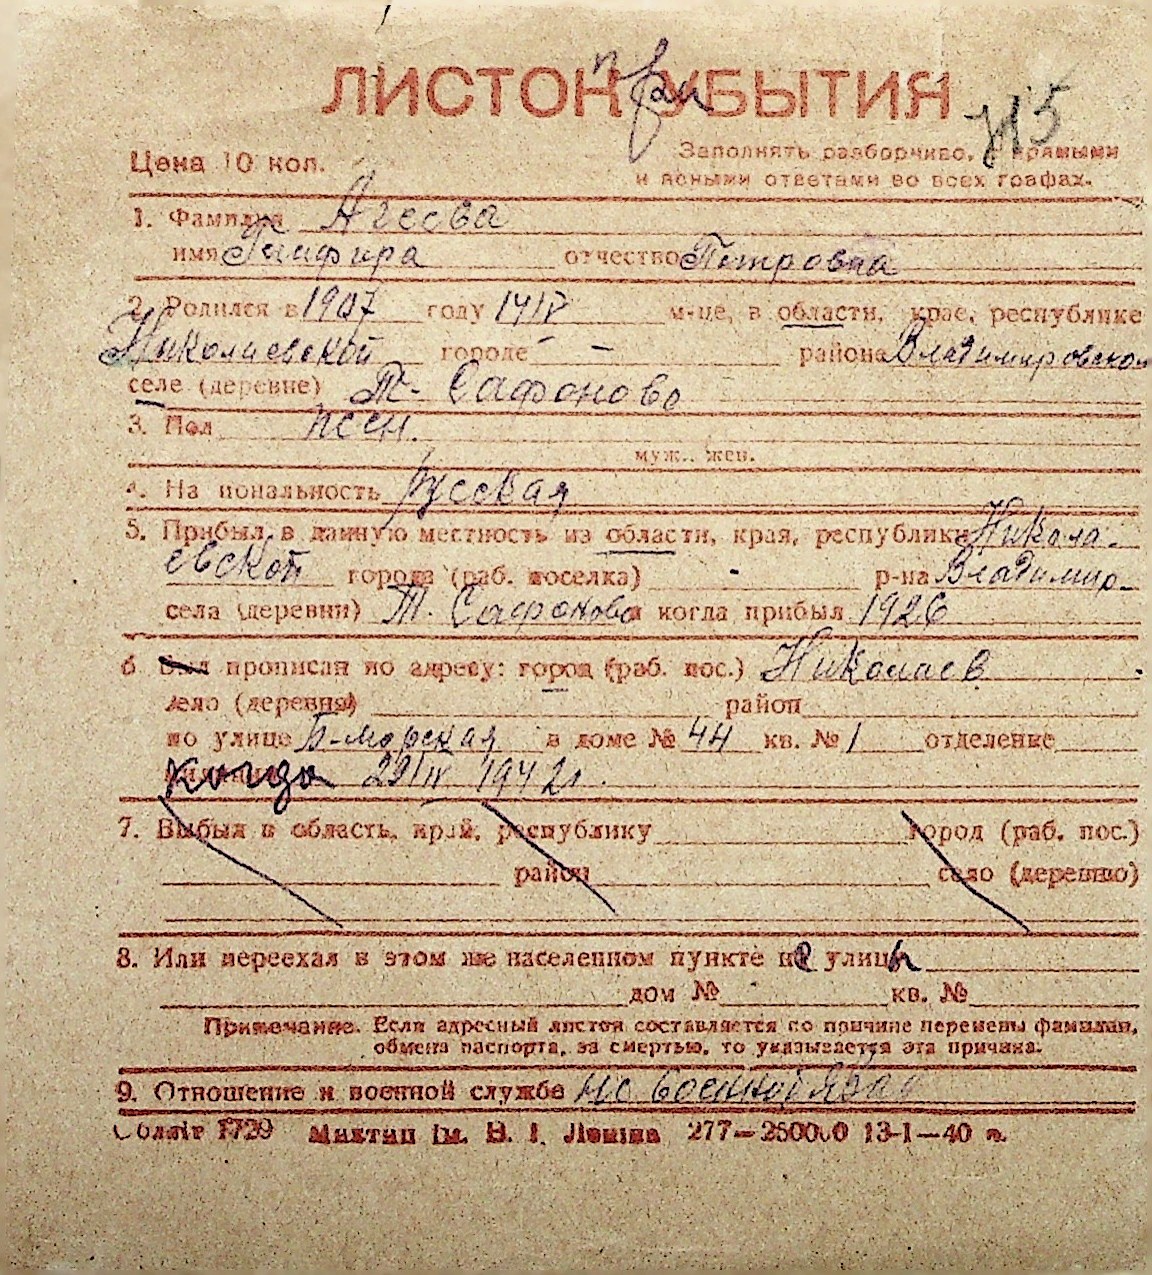 ЛИСТОК УБЫТИЯ
при
Цена 10 коп.
Заполнять разборчиво, прямыми
и ясными ответами во всех графах.
1. Фамилия Агеева
имя Глафира отчество Петровна
2. Родился в 1907 году 14/IV м-це, в области, крае, республике
Николаевской городе - – района Владимировском
селе (деревне) Т- Сафоново
3. Пол жен.
муж., жен.
4. Национальность русская
5. Прибыл в данную местность из области, края, республики Никола-
евской города (раб. поселка) - р-на Владимир-
села (деревни) Т. Сафоново и когда прибыл 1926
6 Был прописан по адресу: город (раб. пос.) Николаев
село (деревня) район
по улице Б-морская в доме № 44 кв. № 1 отделение
милиции когда 29/IV 1942г.
7. Выбыл в область, край, республику город (раб. пос.)
район село (деревню)
8. Или переехал в этом же населенном пункте не улицы
дом № кв. №
Примечание. Если адресный листок составляется по причине перемены фамилии,
обмена паспорта, за смертью, то указывается эта причина.
9. Отношение к военной службе не военнообяз
Облміг 1729 Миктип ім. В. І. Леніна 277—250000 13-I—40 п.